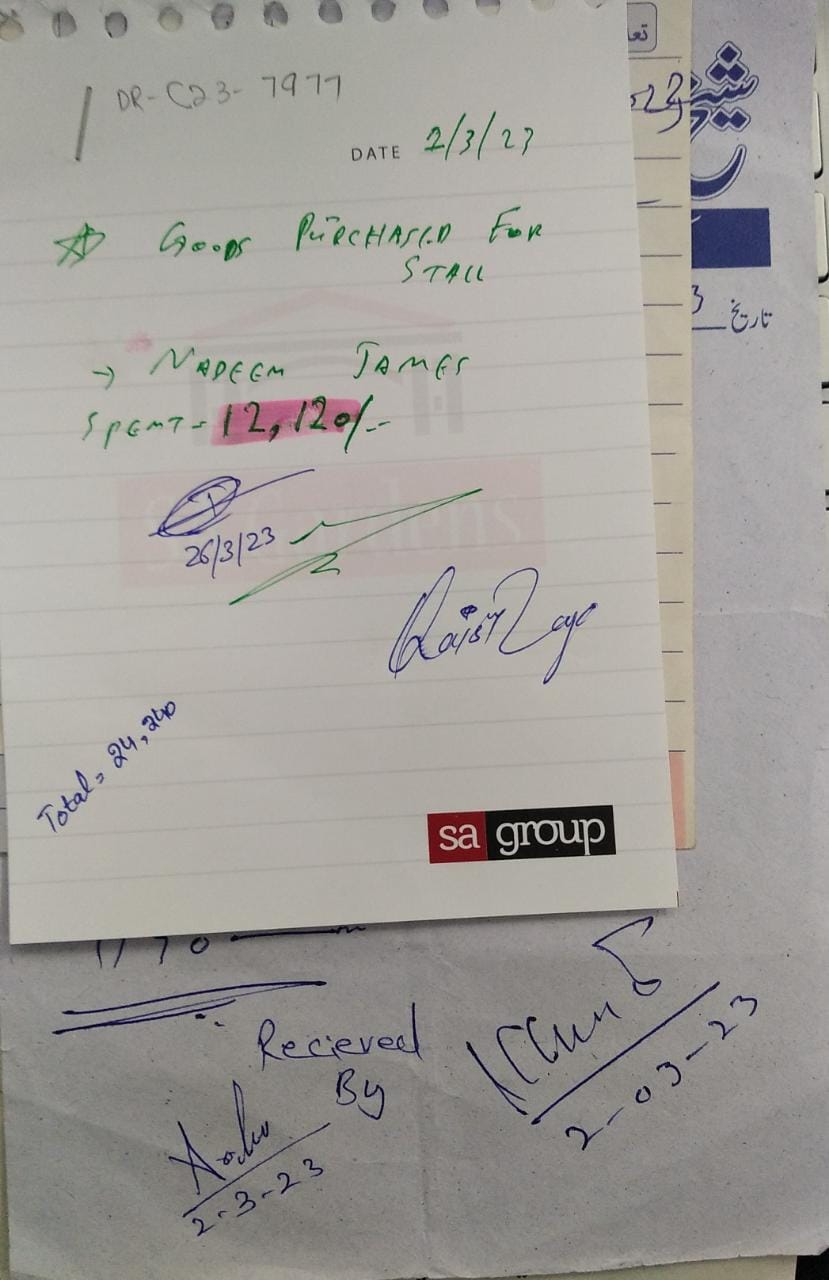 DR-C23-7977
DATE 2/3/23
GOODS PURCHASED FOR
STALL
→ NADEEM JAMES
SPENT = 12,120/-
26/3/23
Total = 24,240
sa group
شیخ
تاریخ
Recieved
By
2-3-23
2-03-23